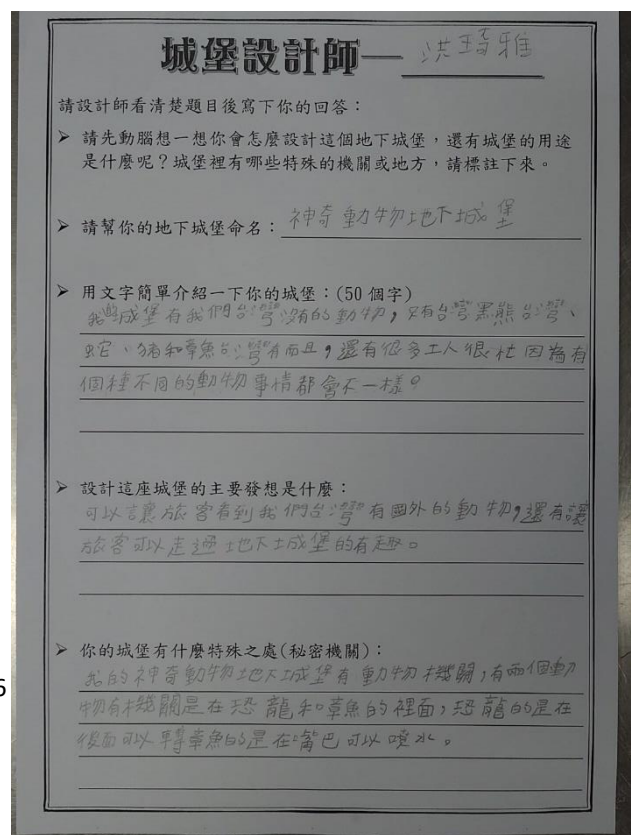 城堡設計師—洪琦雅
請設計師看清楚題目後寫下你的回答：
➤ 請先動腦想一想你會怎麼設計這個地下城堡，還有城堡的用途
是什麼呢？城堡裡有哪些特殊的機關或地方，請標註下來。
➤ 請幫你的地下城堡命名：神奇動物地下城堡
➤ 用文字簡單介紹一下你的城堡：(50 個字)
我的城堡有我們台灣沒有的動物，又有台灣黑熊台灣、
蛇、豬和章魚台灣有而且，還有很多工人很忙因為有
個種不同的動物事情都會不一樣。
➤ 設計這座城堡的主要發想是什麼：
可以讓旅客看到我們台灣有國外的動物，還有讓
旅客可以走過地下城堡的有趣。
➤ 你的城堡有什麼特殊之處(秘密機關)：
我的神奇動物地下城堡有動物機關，有兩個動
物有機關是在恐龍和章魚的裡面，恐龍的是在
後面可以轉章魚的是在嘴巴可以噴水。
6